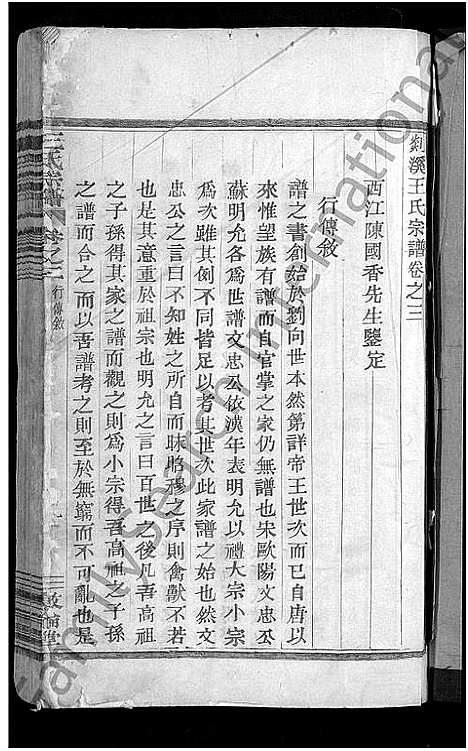 剡溪王氏宗譜卷之三
西江陳國香先生鑒定
行傳敘
譜之書創始於劉向世本然第詳帝王世次而已自唐以
來惟望族有譜而自官掌之家仍無譜也宋歐陽文忠公
蘇明允各爲世譜文忠公依漢年表明允以禮大宗小宗
爲次雖其例不同皆足以考其世次此家譜之始也然文
忠公之言曰不知姓之所自而昧昭穆之序則禽獸不若
也是其意重於祖宗也明允之言曰百世之後凡吾高祖
之子孫得其家之譜而觀之則爲小宗得吾高祖之子孫
之譜而合之而以吾譜考之則至於無窮而不可亂也是
王氏宗譜 卷之三 行傳敘
敦倫堂
FamilySearch International